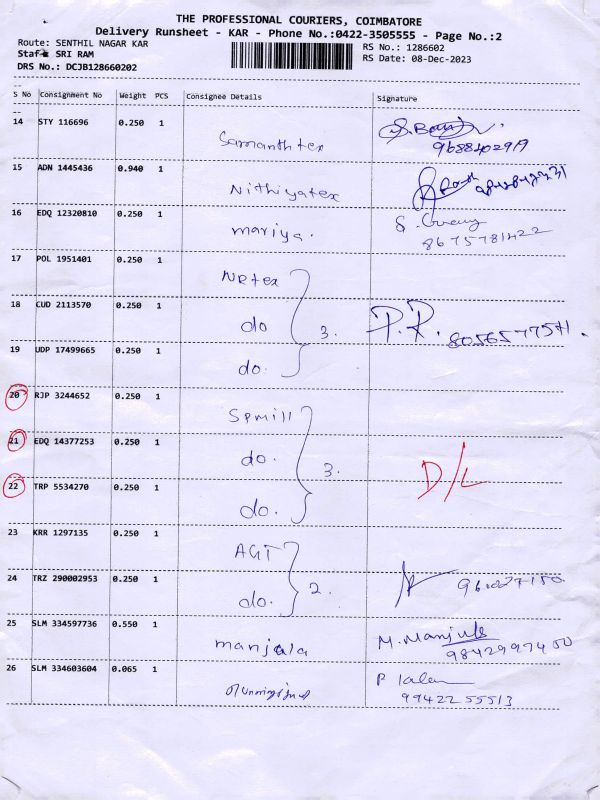 THE PROFESSIONAL COURIERS, COIMBATORE
Delivery Runsheet - KAR - Phone No.:0422-3505555 - Page No.:2
Route: SENTHIL NAGAR KAR
RS No.: 1286602
Staf SRI RAM
RS Date: 08-Dec-2023
DRS No.: DCJB128660202
S No Consignment No Weight PCS Consignee Details Signature
14 STY 116696 0.250 1 Samanthtex
9688402919
15 ADN 1445436 0.940 1 Nithiyatex
16 EDQ 12320810 0.250 1 mariya.
8675781422
17 POL 1951401 0.250 1 NRtex
18 CUD 2113570 0.250 1 do 3. P.R. 8056577571.
19 UDP 17499665 0.250 1 do.
20 RJP 3244652 0.250 1 SPmill
21 EDQ 14377253 0.250 1 do. 3. D/L
22 TRP 5534270 0.250 1 do.
23 KRR 1297135 0.250 1 AGT
24 TRZ 290002953 0.250 1 do. 2.
25 SLM 334597736 0.550 1 manjala M. Manjula
9842997450
26 SLM 334603604 0.065 1
9942255513